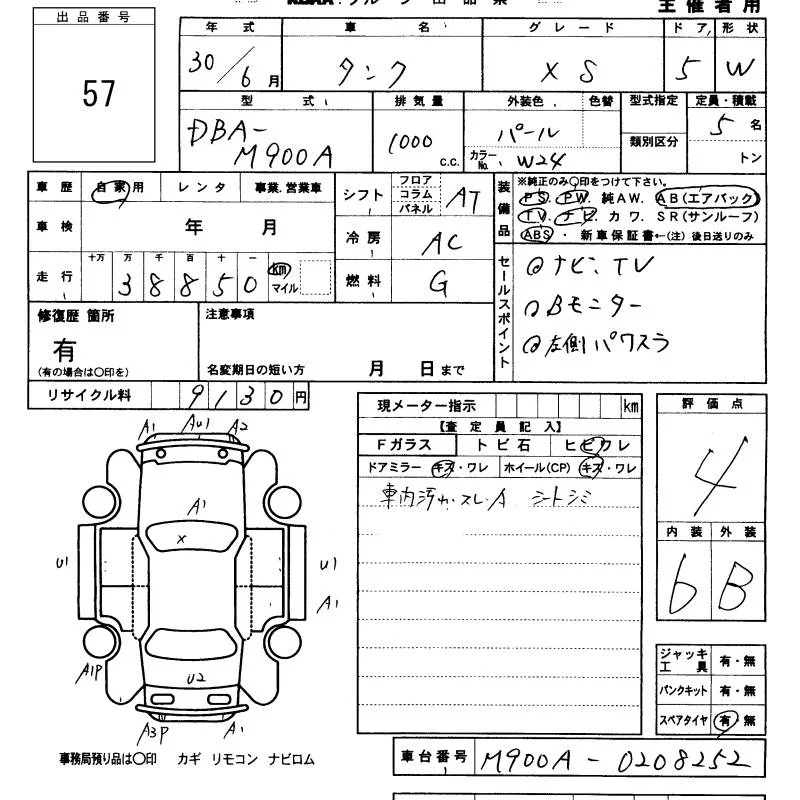 主催者用
出品番号
57
年式 車名 グレード ドア 形状
30/6月 タンク XS 5 W
型式 排気量 外装色 色替 型式指定 定員・積載
DBA-M900A 1000 c.c. パール 類別区分 5名
カラーNo. W24 トン
車歴 自家用 レンタ 事業.営業車
車検 年 月
走行 十万 万 千 百 十 一
38850 km マイル
シフト フロア コラム パネル AT
冷房 AC
燃料 G
装備品
※純正のみ○印をつけて下さい。
PS. PW. 純AW. AB(エアバック)
TV. ナビ. カワ. SR(サンルーフ)
ABS ・ 新車保証書←(注) 後日送りのみ
セールスポイント
◎ナビ、TV
◎Bモニター
◎左側パワスラ
修復歴 箇所
有
(有の場合は○印を)
注意事項
名変期日の短い方 月 日まで
リサイクル料 9130円
現メーター指示 km
【査定員記入】
Fガラス トビ石 ヒビワレ
ドアミラー キズ・ワレ ホイール(CP) キズ・ワレ
車内汚れ、スレ、A シートシミ
評価点
4
内装 外装
6 B
A1 AU1 A2
A1
X
U1 U1
A1
A1P
U2
A3P A1
ジャッキ工具 有・無
パンクキット 有・無
スペアタイヤ 有・無
事務局預り品は○印 カギ リモコン ナビロム
車台番号 M900A-0208252